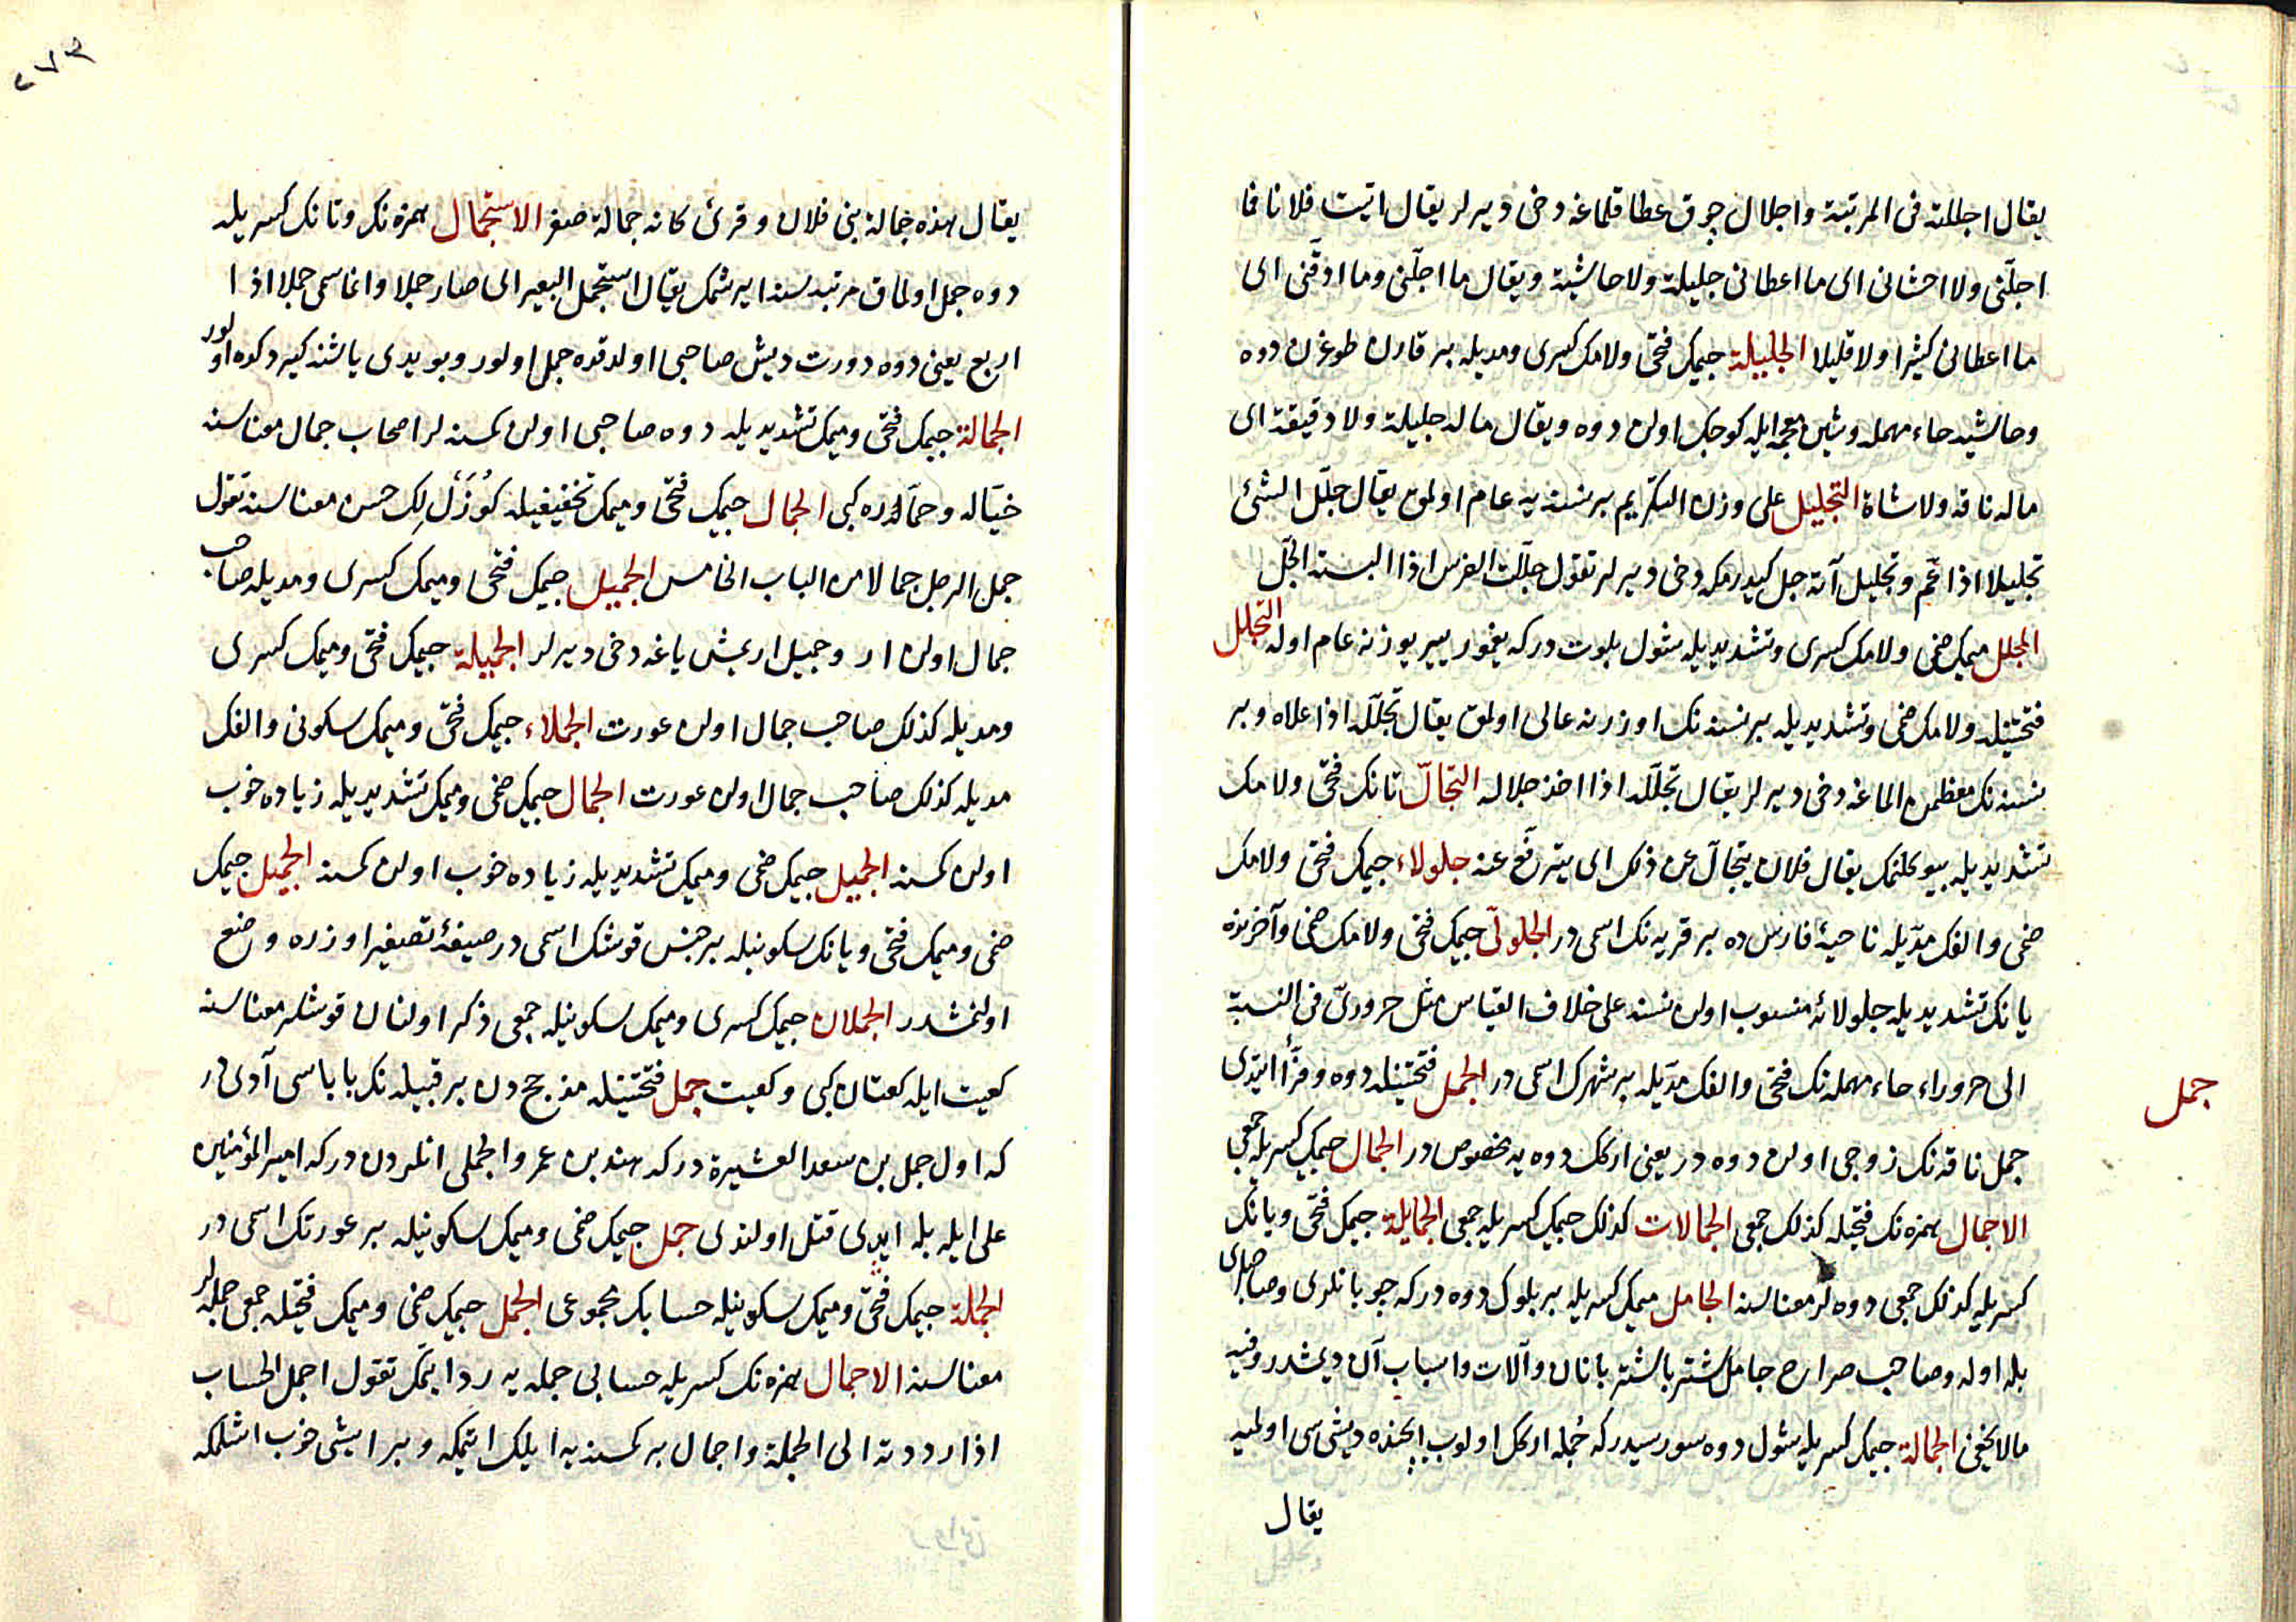 يقال اجللته فى المرتبة واجلال چوق عطا قلماغه دخى ديرلر يقال اتيت فلانا فما
اجلّنى ولا احشانى اى ما اعطانى جليلة ولا حاشية ويقال ما اجلّنى وما ادقّنى اى
ما اعطانى كثيرا ولا قليلا الجليلة جيمك فتحى ولامك كسرى ومديله بر قارن طوغرن دوه
وحاشيه حاء مهمله وشين معجمه ايله كوجك اولن دوه ويقال ماله جليلة ولا دقيقة اى
ماله ناقة ولا شاة التجليل على وزن التكريم بر نسنه يه عام اولمق يقال جلّل الشئ
تجليلا اذا عمّ وتجليل آته جل كيدرمكه دخى ديرلر تقول جلّلت الفرس اذا البسته الجلّ
المجلل ميمك ضمى ولامك كسرى وتشديديله شول بلوت دركه يغمور يير يوزنه عام اوله التجلل
فتحتينله ولامك ضمى وتشديديله بر نسنه نك اوزرنه عالى اولمق يقال تجلّله اذا علاه وبر
نسنه نك معظمن الماغه دخى ديرلر يقال تجلّله اذا اخذ جلاله التجالّ تانك فتحى ولامك
تشديديله بيوكلنمك يقال فلان يتجالّ عن ذلك اى يترفّع عنه جلولاء جيمك فتحى ولامك
ضمى والفك مدّيله ناحيۀ فارس ده بر قريه نك اسمى در الجلولىّ جيمك فتحى ولامك ضمى وآخرنده
يانك تشديديله جلولائه منسوب اولن نسنه على خلاف القياس مثل حرورىّ فى النسبة
الى حروراء حاء مهمله نك فتحى والفك مدّيله بر شهرك اسمى در الجمل فتحتينله دوه وفرّأ ايتدى
جمل
جمل ناقه نك زوجى اولن دوه در يعنى اركك دوه يه مخصوص در الجمال جيمك كسريله جمعى
الاجمال همزه نك فتحيله كذلك جمعى الجمالات كذلك جيمك كسريله جمعى الجمايلة جيمك فتحى ويانك
كسريله كذلك جمعى دوه لر معناسنه الجامل ميمك كسريله بر بلوك دوه دركه چوبانلرى وصاحبلرى
بله اوله وصاحب صراح جامل شتر باشتربانان وآلات واسباب آن ديمشدر وفيه
مالا يخفى الجمالة جيمك كسريله شول دوه سورسيدركه جمله اركك اولوب ايچنده ديشىسى اولميه
يقال
٢٧٣
يقال هذه جمالة بنى فلان وقرئ كانه جمالة صفر الاستجمال همزه نك وتانك كسريله
دوه جمل اولماق مرتبه سنه ايرشمك يقال استجمل البعير اى صار جملا وانما سمى جملا اذا
اربع يعنى دوه دورت ديش صاحبى اولدقده جمل اولور وبو يدى ياشنه كيردكده اولور
الجمالة جيمك فتحى وميمك تشديديله دوه صاحبى اولن كمسنه لر اصحاب جمال معناسنه
خيّاله وحمّاره كبى الجمال جيمك فتحى وميمك تخفيفيله كوزللك حسن معناسنه تقول
جمل الرجل جمالا من الباب الخامس الجميل جيمك فتحى وميمك كسرى ومديله صاحب
جمال اولن ار وجميل اريمش ياغه دخى ديرلر الجميلة جيمك فتحى وميمك كسرى
ومديله كذلك صاحب جمال اولن عورت الجملاء جيمك فتحى وميمك سكونى والفك
مديله كذلك صاحب جمال اولن عورت الجمال جيمك ضمى وميمك تشديديله زياده خوب
اولن كمسنه الجميل جيمك ضمى وميمك تشديديله زياده خوب اولن كمسنه الجميل جيمك
ضمى وميمك فتحى ويانك سكونيله بر جنس قوشك اسمى در صيغۀ تصغير اوزره وضع
اولنمشدر الجملان جيمك كسرى وميمك سكونيله جمعى ذكر اولنان قوشلر معناسنه
كعيت ايله كعتان كبى وكعيت جمل فتحتينله مذحج دن بر قبيله نك باباسى آدى در
كه اول جمل بن سعد العشيرة دركه هند بن عمرو الجملى انلردن دركه امير المؤمنين
على ايله بله ايدى قتل اولندى جمل جيمك ضمى وميمك سكونيله بر عورتك اسمى در
الجملة جيمك فتحى وميمك سكونيله حسابك مجموعى الجمل جيمك ضمى وميمك فتحيله جمعى جمله لر
معناسنه الاجمال همزه نك كسريله حسابى جمله يه رد ايتمك تقول اجمل الحساب
اذا رددته الى الجملة واجمال بر كمسنه يه ايلك ايتمكه وبر ايشى خوب اشلمكه